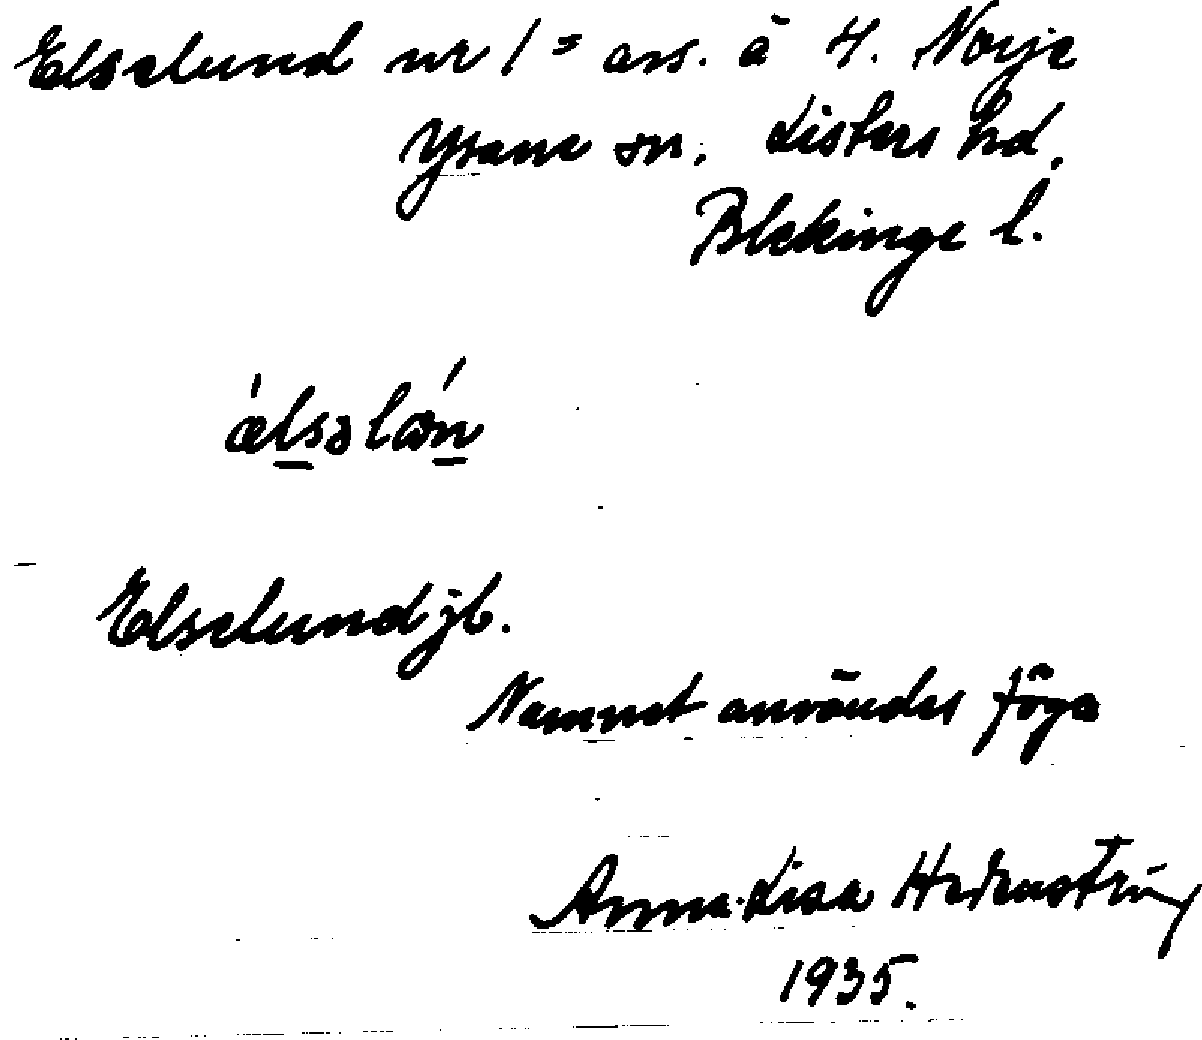 Elselund nr 1 = avs. å 4. Norje
Ysane sn. Listers hd.
Blekinge l.
Elselund jb.
Namnet användes föga
Anna-Lisa Hedenström
1935.